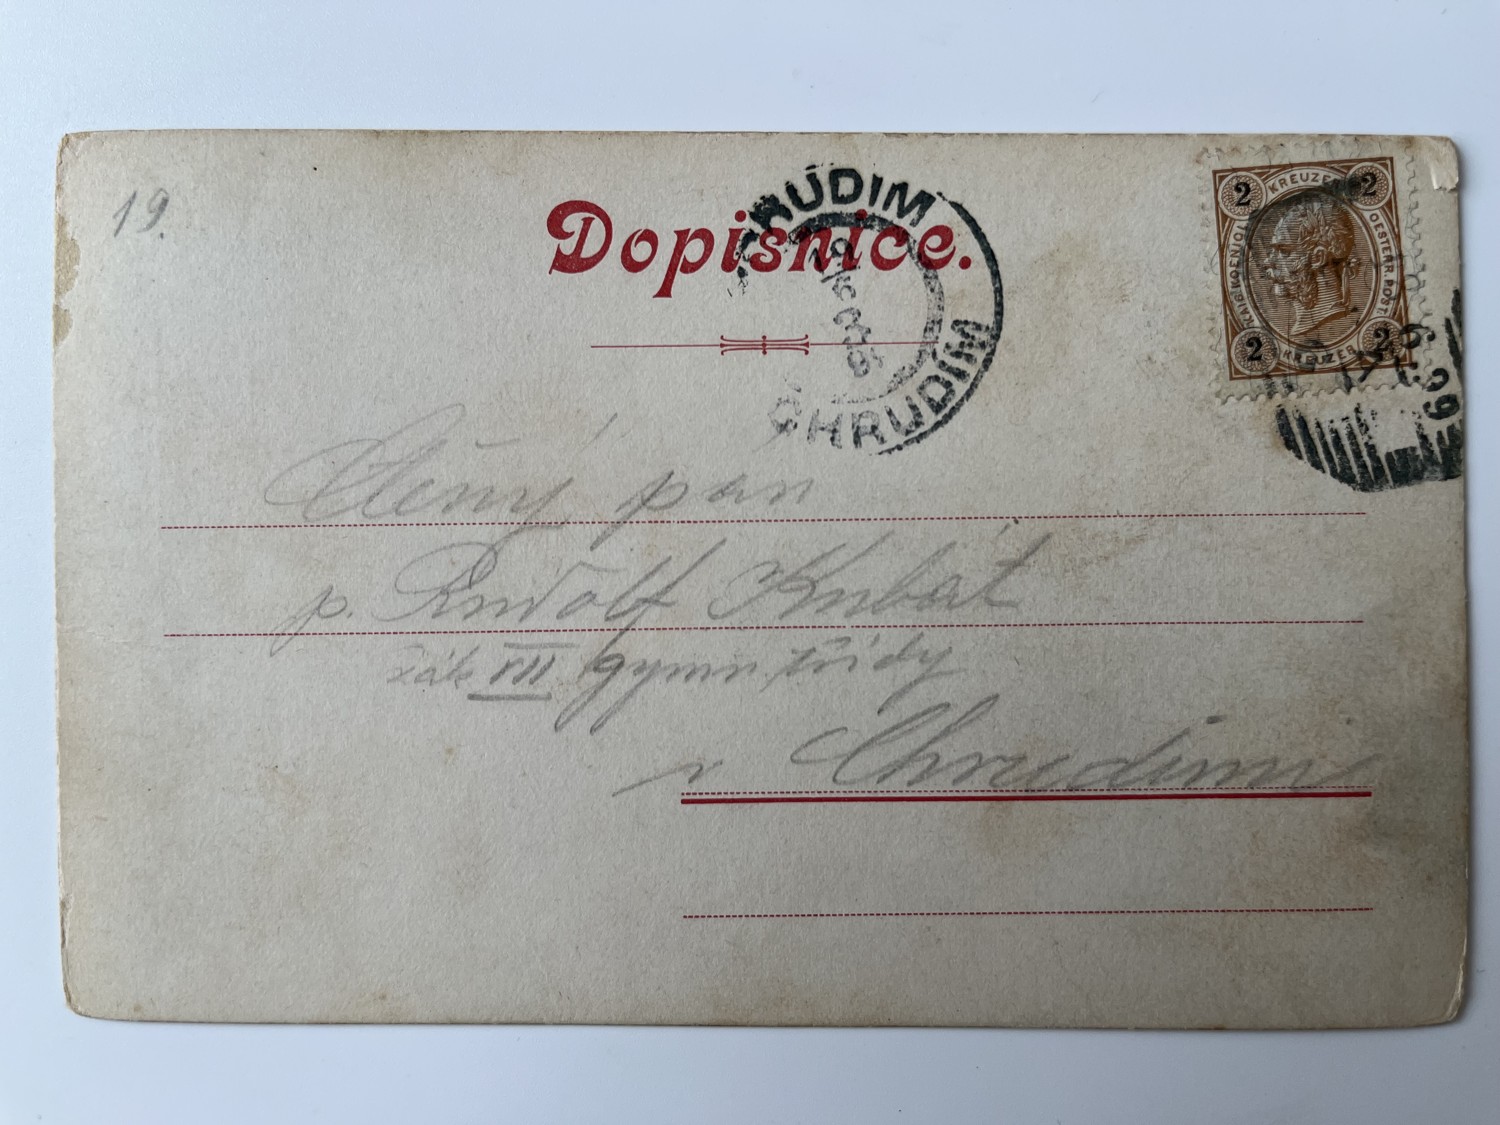 19.
Dopisnice.
CHRUDIM
CHRUDIM
2 KREUZER 2
KAIS. KOENIGL.
OESTERR. POST.
2 KREUZER 2
99
Ctěný pan
p. Rudolf Kubát
žák VII gymn třídy
v Chrudimi